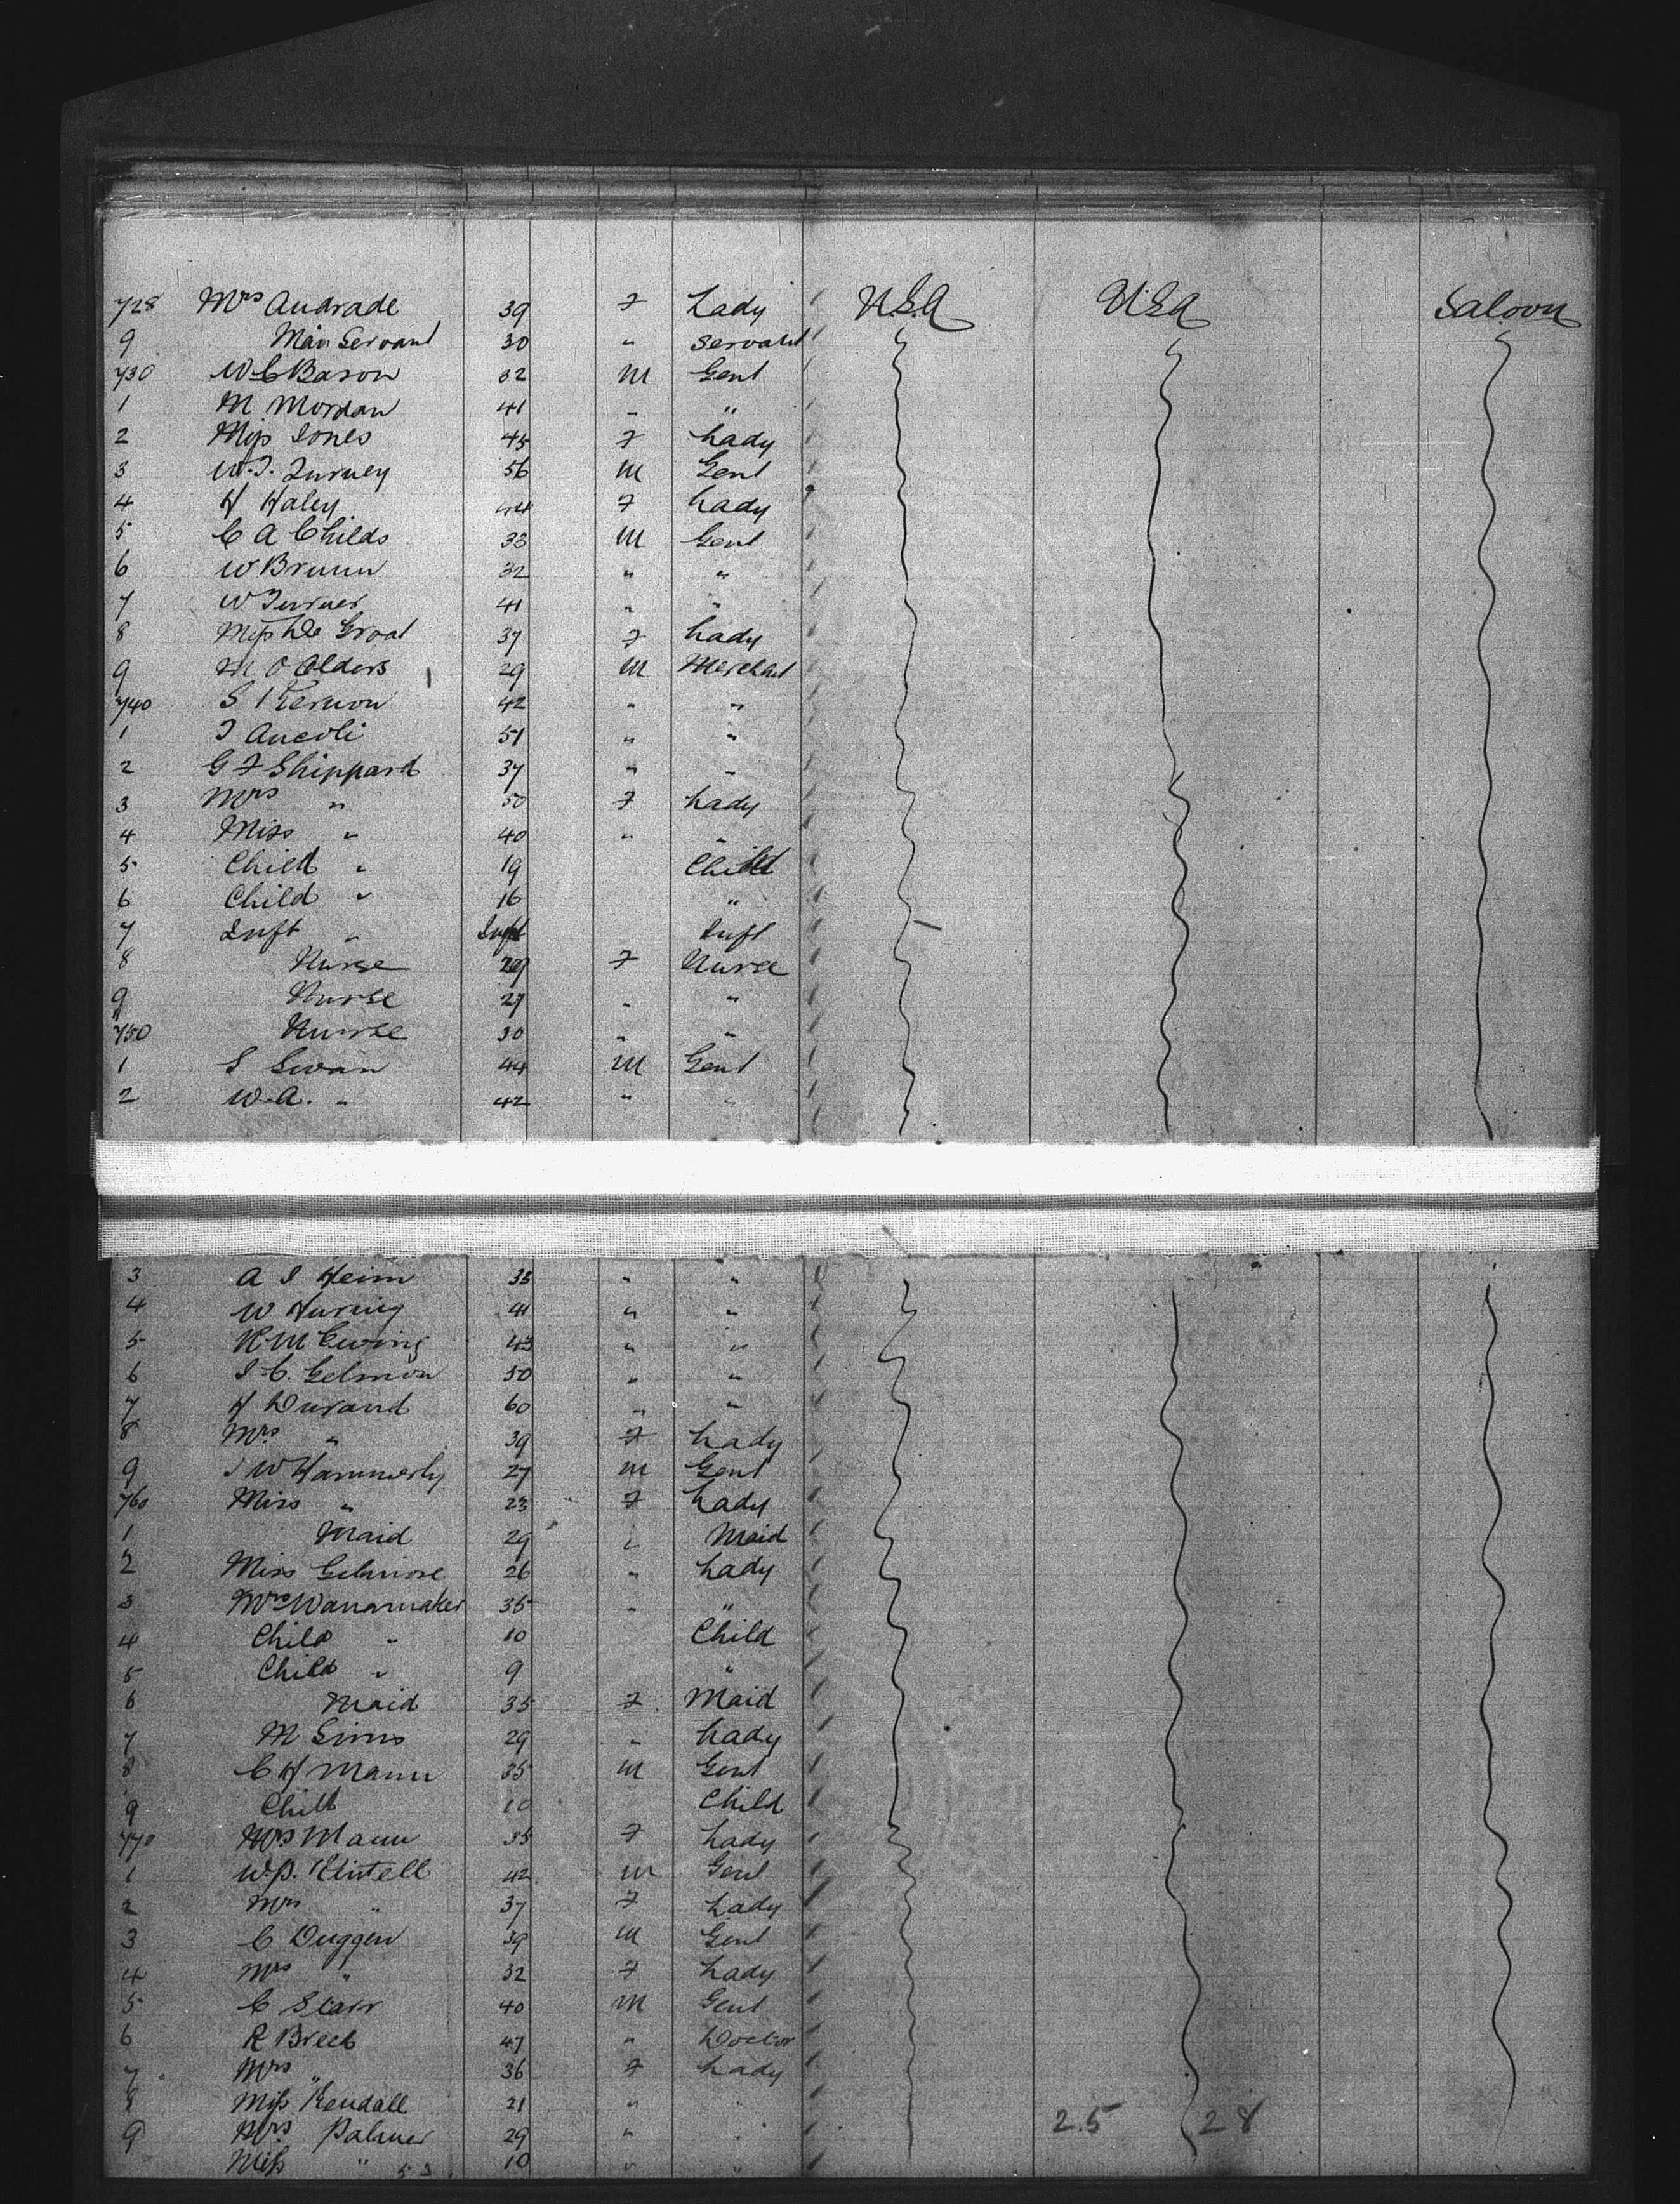 728 Mrs Andrade 39 F Lady U.S.A U.S.A Saloon
9 Man Servant 30 " Servant
730 W C Bason 32 M Gent
1 M Mordan 41 " "
2 Miss Jones 45 F Lady
3 W.T. Turney 56 M Gent
4 H Haley 44 F Lady
5 C A Childs 33 M Gent
6 W Brunn 32 " "
7 W Turner 41 " "
8 Miss De Groat 37 F Lady
9 M O Olders 29 M Merchant
740 S Kernon 42 " "
1 J Ancoli 51 " "
2 G F Shippard 37 " "
3 Mrs " 50 F Lady
4 Miss " 40 " "
5 Child " 19 Child
6 Child " 16 "
7 Inft " Inft Inft
8 Nurse 29 F Nurse
9 Nurse 27 " "
750 Nurse 30 " "
1 S Swan 44 M Gent
2 W.A. " 42 " "
3 A J Heim 35 " "
4 W Huring 41 " "
5 R M Ewing 43 " "
6 J C. Gelmon 50 " "
7 H Durand 60 " "
8 Mrs " 39 F Lady
9 J W Hammerly 27 M Gent
760 Miss " 23 F Lady
1 Maid 29 " Maid
2 Miss Gelmore 26 " Lady
3 Mrs Wanamaker 35 " "
4 Child " 10 Child
5 Child " 9 "
6 Maid 35 F Maid
7 M Sims 29 " Lady
8 C H Mann 35 M Gent
9 Child 10 Child
770 Mrs Mann 35 F Lady
1 W.P. 42 M Gent
2 Mrs " 37 F Lady
3 C Duggen 39 M Gent
4 Mrs " 32 F Lady
5 C Starr 40 M Gent
6 R Breeb 47 " Doctor
7 Mrs " 36 F Lady
8 Miss Kendall 21 "
9 Mrs Palmer 29 " 25 28
Miss " 53 10 " "